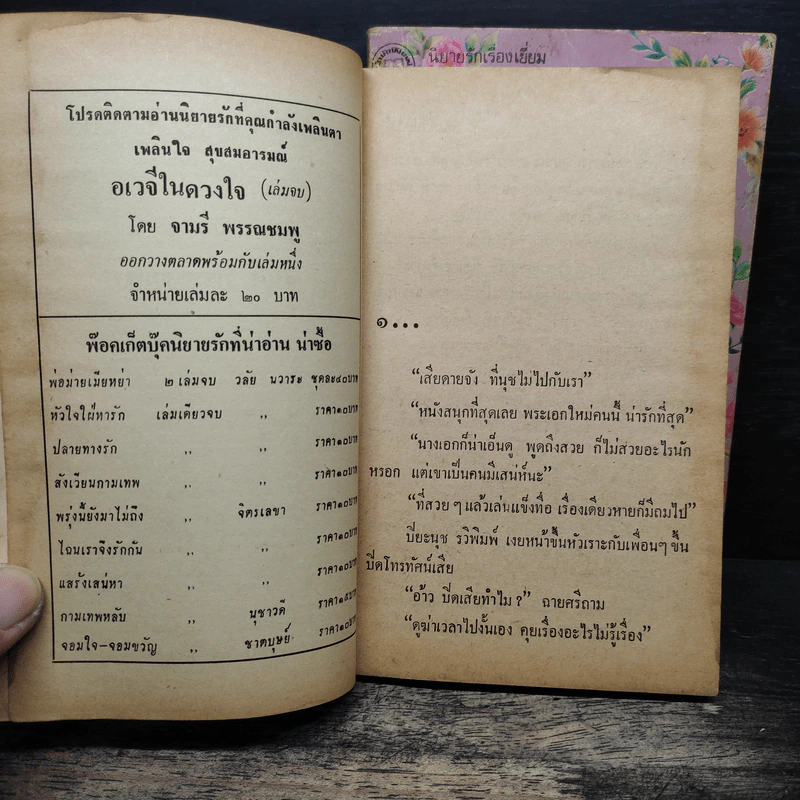 โปรดติดตามอ่านนิยายรักที่คุณกำลังเพลินตา
เพลินใจ สุขสมอารมณ์
อเวจีในดวงใจ (เล่มจบ)
โดย จามรี พรรณชมพู
ออกวางตลาดพร้อมกับเล่มหนึ่ง
จำหน่ายเล่มละ ๒๐ บาท
พ๊อคเก็ตบุ๊คนิยายรักที่น่าอ่าน น่าซื้อ
พ่อม่ายเมียหย่า ๒ เล่มจบ วลัย นวาระ ชุดละ๔๐บาท
หัวใจใฝ่หารัก เล่มเดียวจบ ,, ราคา๑๐บาท
ปลายทางรัก ,, ,, ราคา๑๐บาท
สังเวียนกามเทพ ,, ,, ราคา๑๐บาท
พรุ่งนี้ยังมาไม่ถึง ,, จิตรเลขา ราคา๑๐บาท
ไฉนเราจึงรักกัน ,, ,, ราคา๑๐บาท
แสรังเสน่หา ,, ,, ราคา๑๐บาท
กามเทพหลับ ,, นุชาวดี ราคา๑๕บาท
จอมใจ-จอมขวัญ ,, ชาตบุษย์ ราคา๑๐บาท
นิยายรักเรื่องเยี่ยม
๑...
“เสียดายจัง ที่นุชไม่ไปกับเรา”
“หนังสนุกที่สุดเลย พระเอกใหม่คนนี้ น่ารักที่สุด”
“นางเอกก็น่าเอ็นดู พูดถึงสวย ก็ไม่สวยอะไรนัก
หรอก แต่เขาเป็นคนมีเสน่ห์นะ”
“ที่สวย ๆ แล้วเล่นแข็งทื่อ เรื่องเดียวหายก็มีถมไป”
ปิยะนุช รวิพิมพ์ เงยหน้าขึ้นหัวเราะกับเพื่อนๆ ขึ้น
ปิดโทรทัศน์เสีย
“อ้าว ปิดเสียทำไม ?” ฉายศรีถาม
“ดูฆ่าเวลาไปงั้นเอง คุยเรื่องอะไรไม่รู้เรื่อง”